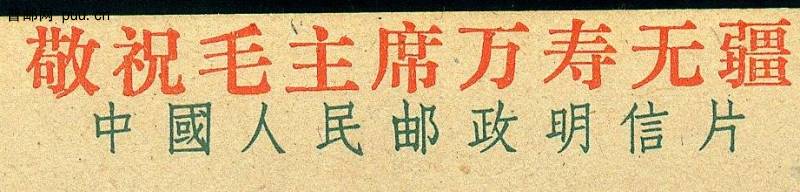 首邮网 puu.cn
敬祝毛主席万寿无疆
中國人民邮政明信片